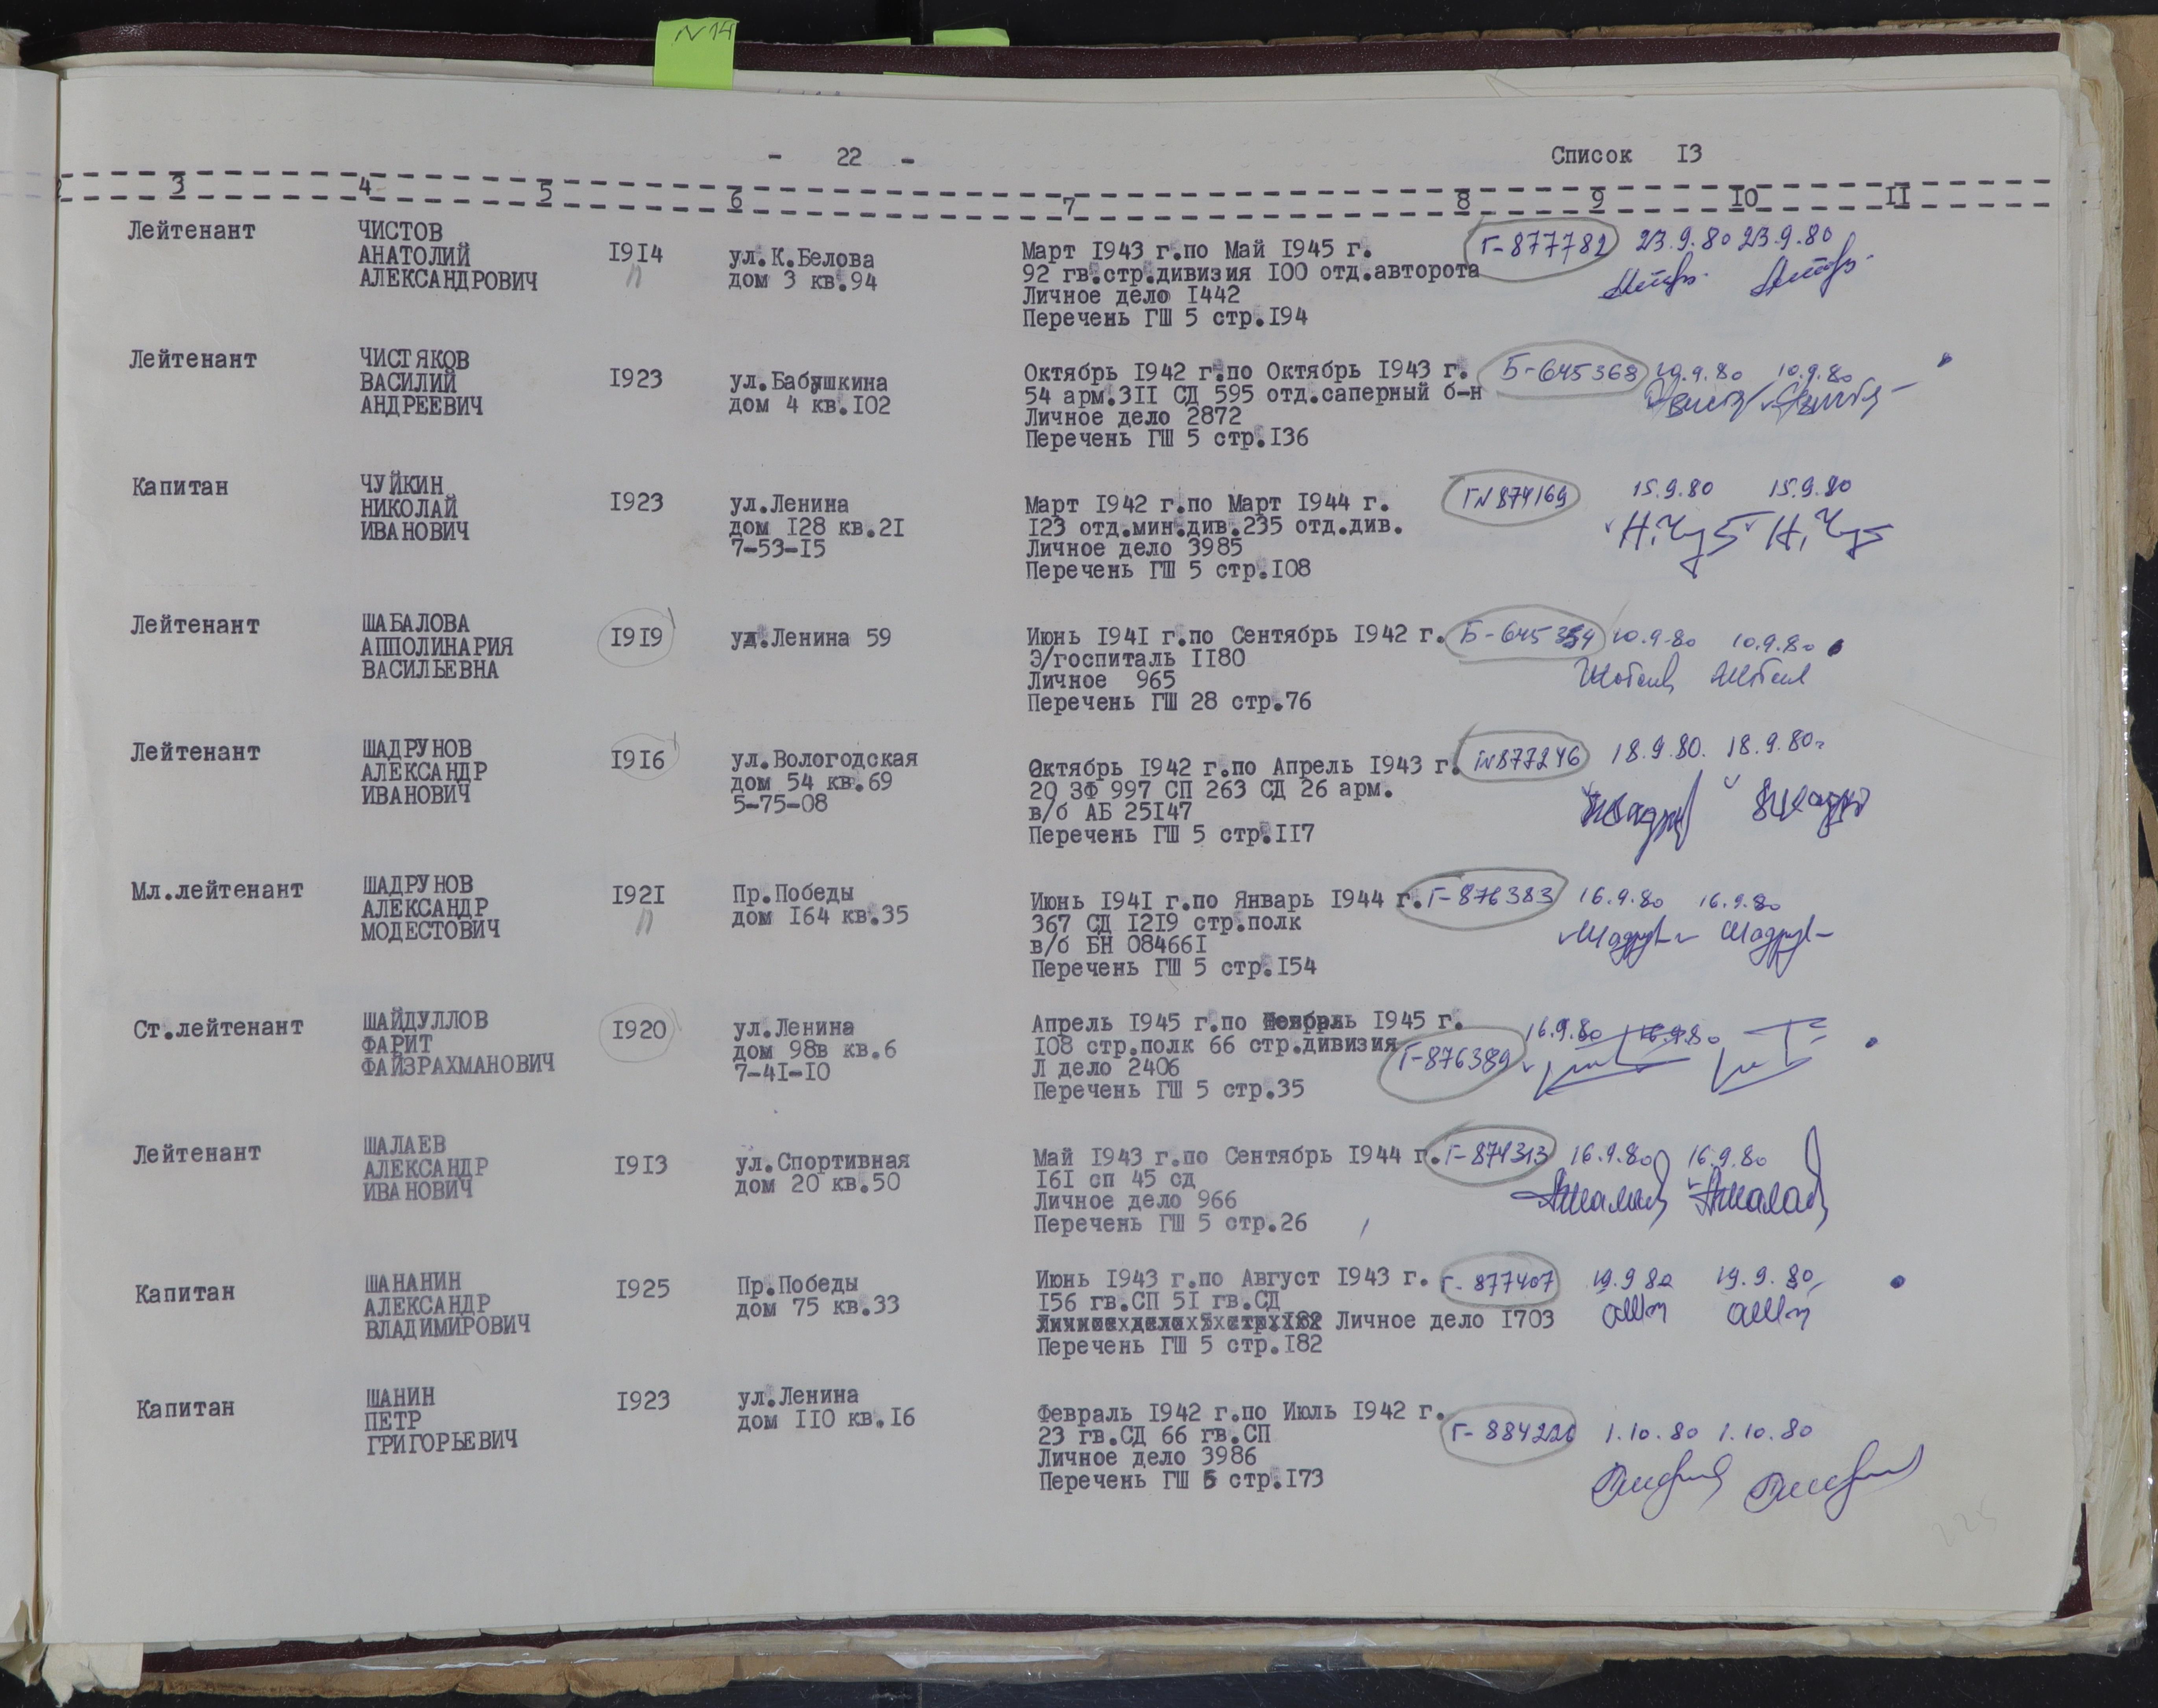 N14
- 22 -
Список I3
3 4 5 6 7 8 9 IO II
Лейтенант
ЧИСТОВ
АНАТОЛИЙ
АЛЕКСАНДРОВИЧ
I9I4
ул.К.Белова
дом 3 кв.94
Март I943 г.по Май I945 г.
92 гв.стр.дивизия IOO отд.авторота
Личное дело I442
Перечень ГШ 5 стр.I94
Г-877782 23.9.80 23.9.80
Лейтенант
ЧИСТЯКОВ
ВАСИЛИЙ
АНДРЕЕВИЧ
I923
ул.Бабушкина
дом 4 кв.IO2
Октябрь I942 г.по Октябрь I943 г.
54 арм.3II СД 595 отд.саперный б-н
Личное дело 2872
Перечень ГШ 5 стр.I36
Б-645368 10.9.80 10.9.80
Капитан
ЧУЙКИН
НИКОЛАЙ
ИВАНОВИЧ
I923
ул.Ленина
дом I28 кв.2I
7-53-I5
Март I942 г.по Март I944 г.
I23 отд.мин.див.235 отд.див.
Личное дело 3985
Перечень ГШ 5 стр.IO8
ГN874169 15.9.80 15.9.80
Лейтенант
ШАБАЛОВА
АППОЛИНАРИЯ
ВАСИЛЬЕВНА
I9I9
ул.Ленина 59
Июнь I94I г.по Сентябрь I942 г.
Э/госпиталь II80
Личное 965
Перечень ГШ 28 стр.76
Б-645354 10.9.80 10.9.80
Лейтенант
ШАДРУНОВ
АЛЕКСАНДР
ИВАНОВИЧ
I9I6
ул.Вологодская
дом 54 кв.69
5-75-08
Октябрь I942 г.по Апрель I943 г.
20 ЗФ 997 СП 263 СД 26 арм.
в/б АБ 25I47
Перечень ГШ 5 стр.II7
ГN877246 18.9.80. 18.9.80г
Мл.лейтенант
ШАДРУНОВ
АЛЕКСАНДР
МОДЕСТОВИЧ
I92I
Пр.Победы
дом I64 кв.35
Июнь I94I г.по Январь I944 г.
367 СД I2I9 стр.полк
в/б БН 08466I
Перечень ГШ 5 стр.I54
Г-876383 16.9.80 16.9.80
Ст.лейтенант
ШАЙДУЛЛОВ
ФАРИТ
ФАЙЗРАХМАНОВИЧ
I920
ул.Ленина
дом 98в кв.6
7-4I-IO
Апрель I945 г.по Февраль I945 г.
IO8 стр.полк 66 стр.дивизия
Л дело 2406
Перечень ГШ 5 стр.35
Г-876389 16.9.80 16.9.80
Лейтенант
ШАЛАЕВ
АЛЕКСАНДР
ИВАНОВИЧ
I9I3
ул.Спортивная
дом 20 кв.50
Май I943 г.по Сентябрь I944 г.
I6I сп 45 сд
Личное дело 966
Перечень ГШ 5 стр.26
Г-874313 16.9.80 16.9.80
Капитан
ШАНАНИН
АЛЕКСАНДР
ВЛАДИМИРОВИЧ
I925
Пр.Победы
дом 75 кв.33
Июнь I943 г.по Август I943 г.
I56 гв.СП 5I гв.СД
Личное дело I703
Перечень ГШ 5 стр.I82
Г-877407 19.9 80 19.9.80
Капитан
ШАНИН
ПЕТР
ГРИГОРЬЕВИЧ
I923
ул.Ленина
дом IIO кв.I6
Февраль I942 г.по Июль I942 г.
23 гв.СД 66 гв.СП
Личное дело 3986
Перечень ГШ 5 стр.I73
Г-884226 1.10.80 1.10.80